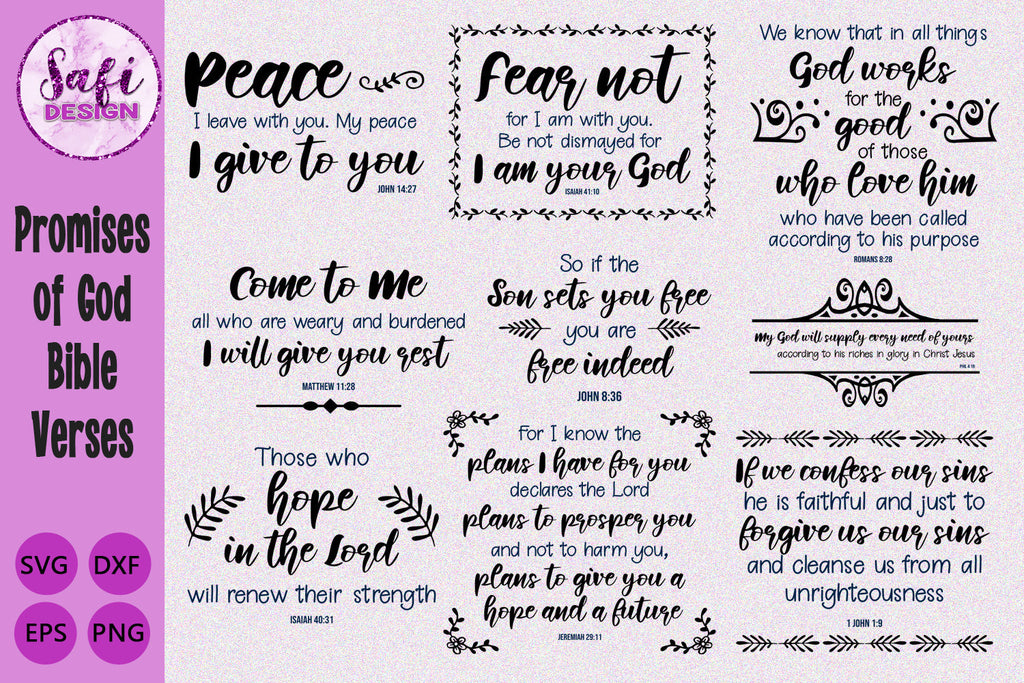 Safi
DESIGN
Promises
of God
Bible
Verses
SVG DXF
EPS PNG
Peace
I leave with you. My peace
I give to you
JOHN 14:27
Fear not
for I am with you.
Be not dismayed for
I am your God
ISAIAH 41:10
We know that in all things
God works
for the
good
of those
who love him
who have been called
according to his purpose
ROMANS 8:28
Come to Me
all who are weary and burdened
I will give you rest
MATTHEW 11:28
So if the
Son sets you free
you are
free indeed
JOHN 8:36
My God will supply every need of yours
according to his riches in glory in Christ Jesus
PHIL 4:19
Those who
hope
in the Lord
will renew their strength
ISAIAH 40:31
For I know the
plans I have for you
declares the Lord
plans to prosper you
and not to harm you,
plans to give you a
hope and a future
JEREMIAH 29:11
If we confess our sins
he is faithful and just to
forgive us our sins
and cleanse us from all
unrighteousness
1 JOHN 1:9